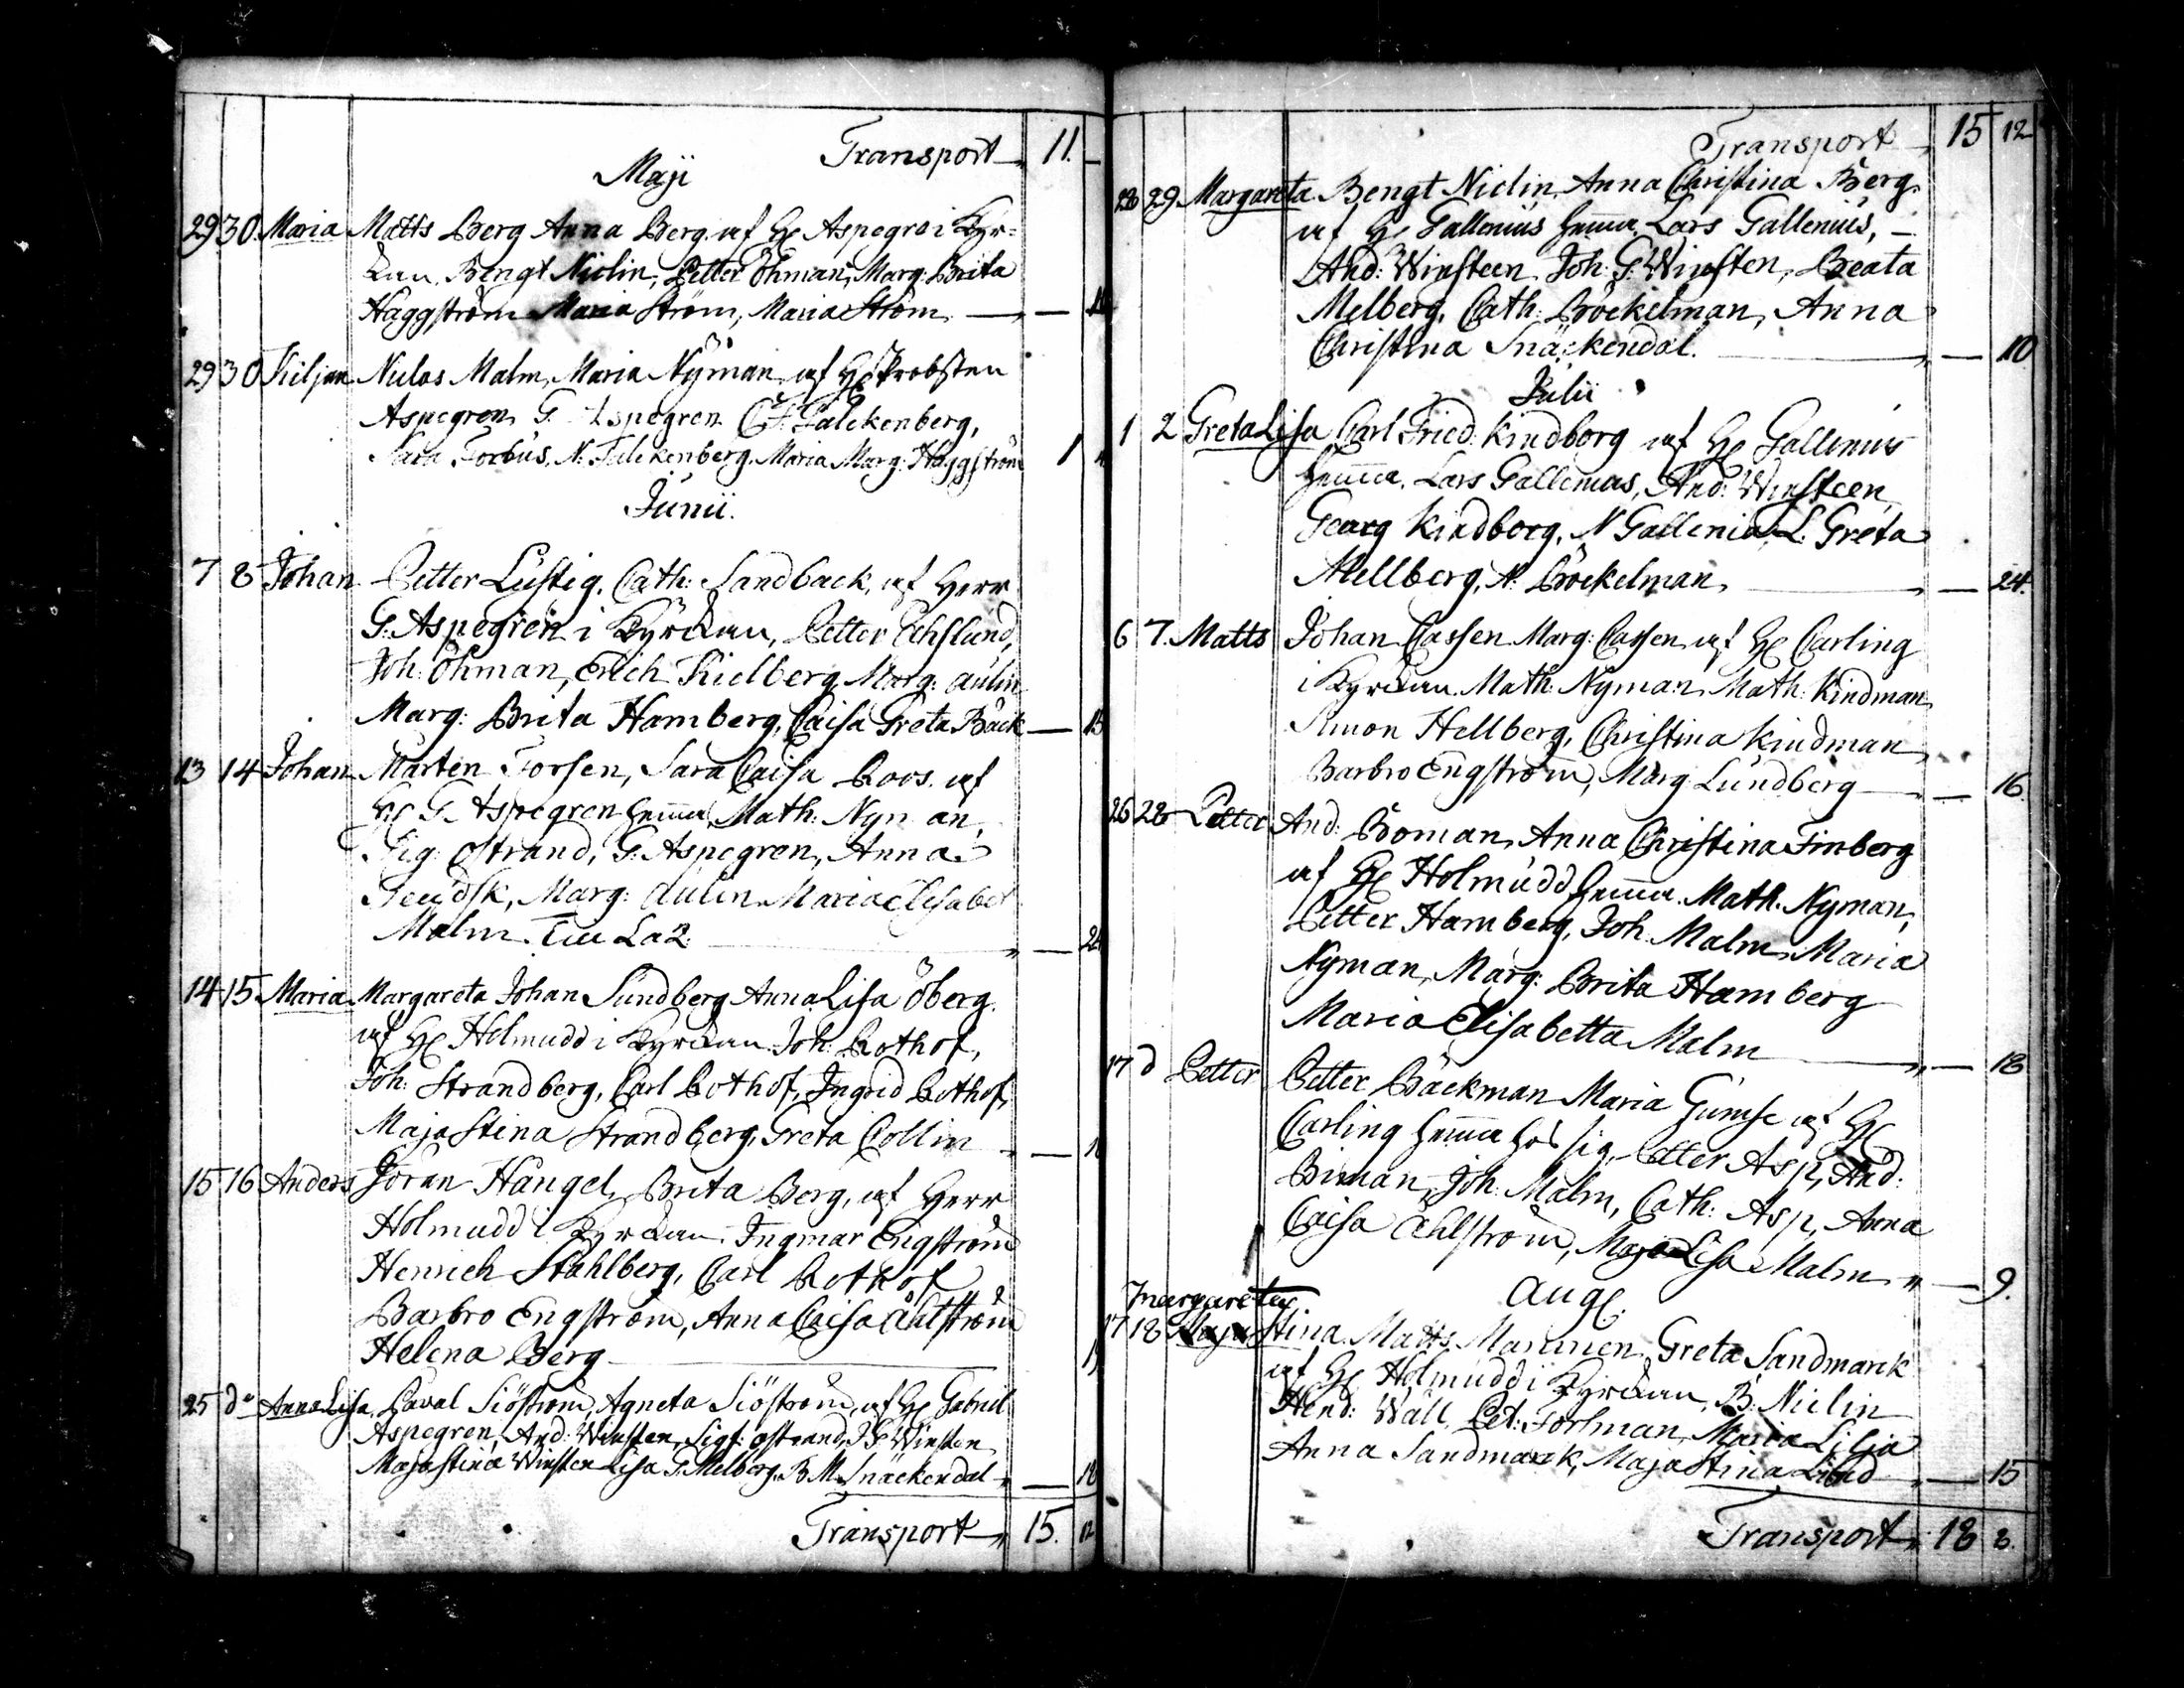 Transport 11. –
Maji
29 30 Maria Matts Berg Anna Berg af H: Aspegre i Kyr=
kan, Bengt Niclin, Petter Öhman, Marg: Brita
Haggström Maria Ström, Maria Ström —
29 30 Kiljan Niclas Malm, Maria Nÿman, af H: Probsten
Aspegren, G. Aspegren C. F. Falckenberg,
Sara Forbus, N. Falckenberg, Maria Marg: Häggström 1
Junii.
7 8 Johan Petter Lustig, Cath: Sandback, af Herr
G: Aspegren i Kyrckan, Petter Ehslund,
Joh: Öhman, Erich Kielberg, Marg: Aulin
Marg: Brita Hamberg, Caisa Greta Bäck — 15
13 14 Johan Mårten Forsen, Sara Caisa Roos. af
H: G. Aspegren hemma, Math: Nyman,
Sig: Ostrand, G: Aspegren, Anna
Marg: Aulin Maria Elisabet
Malm. — 24
14 15 Maria Margareta Johan Sundberg Anna Lisa Öberg.
af H: Holmudd i Kyrckan Joh: Rothof,
Joh: Strandberg, Carl Rothof, Ingrid Rothof,
Maja Stina Strandberg, Greta Collin —
15 16 Anders Jöran Hångel, Brita Berg, af Herr
Holmudd i Kyrckan. Ingmar Engström
Henrich Ståhlberg, Carl Rothof
Barbro Engström, Anna Caisa Ahlström
Helena Berg —
25 do Anna Lisa, Pavel Siöström, Agneta Siöström, af H: Gabriel
Aspegren, And: Winsten, Sigf: Ostrand, J G Winsten
Maja Stina Winsten Lisa G. Melberg, B. M. Snäckendal — 18
Transport 15. 12
Transport 15 12
28 29 Margareta Bengt Niclin, Anna Christina Berg
af H: Gallenius hemma, Lars Gallenius, –
And: Winsteen, Joh: G: Winsten, Beata
Melberg, Cath: Böckelman, Anna
Christina Snäckendal. — 10
Julii
1 2 Greta Lisa Carl Fried: Kindborg af H: Gallenius
hemma. Lars Gallenius, And: Winsteen,
Georg Kindborg, N Gallenia, L. Greta
Mellberg, N: Böckelman, — 24.
6 7. Matts Johan Cassen Marg: Cassen af H: Carling
i Kyrckan. Math: Nyman, Math: Kindman
Simon Hellberg, Christina Kindman
Barbro Engström, Marg Lundberg — 16.
26 28 Petter And: Boman, Anna Christina Finberg
af H: Holmudd hemma. Math. Nyman,
Petter Hamberg, Joh. Malm, Maria
Nyman, Marg: Brita Hamberg
Maria Elisabetta Malm — 18
17 d Petter Petter Bäckman Maria Gumse af H:
Carling hemma hos sig, Petter Asp, And:
Biman, Joh: Malm, Cath: Asp, Anna
Caisa Ehlström, Maja Lisa Malm — 9.
Aug:
Margareta
17 18 Maja Stina Matts Mannen, Greta Sandmark
af H: Holmudd i Kyrckan, B: Niclin
Hend: Wäll, Pet: Forsman, Maria Lilja
Anna Sandmark, Maja Stina Lind — 15
Transport 18 3.